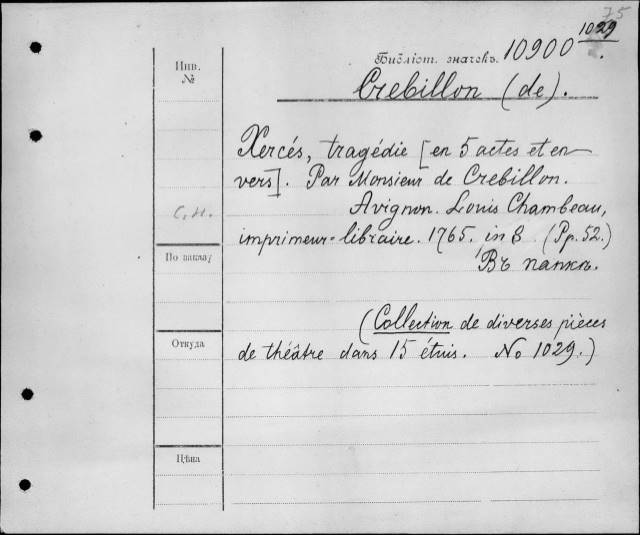 75
1029
Библіот. значекъ. 10900
Инв.
№
Crebillon (de).
Xercés, tragédie [en 5 actes et en
vers]. Par Monsieur de Crebillon.
С.И.
Avignon. Louis Chambeau,
imprimeur-libraire. 1765. in 8. (Pp. 52.)
По заказу
Въ папкѣ.
(Collection de diverses pièces
Откуда
de théâtre dans 15 étuis. No 1029.)
Цѣна